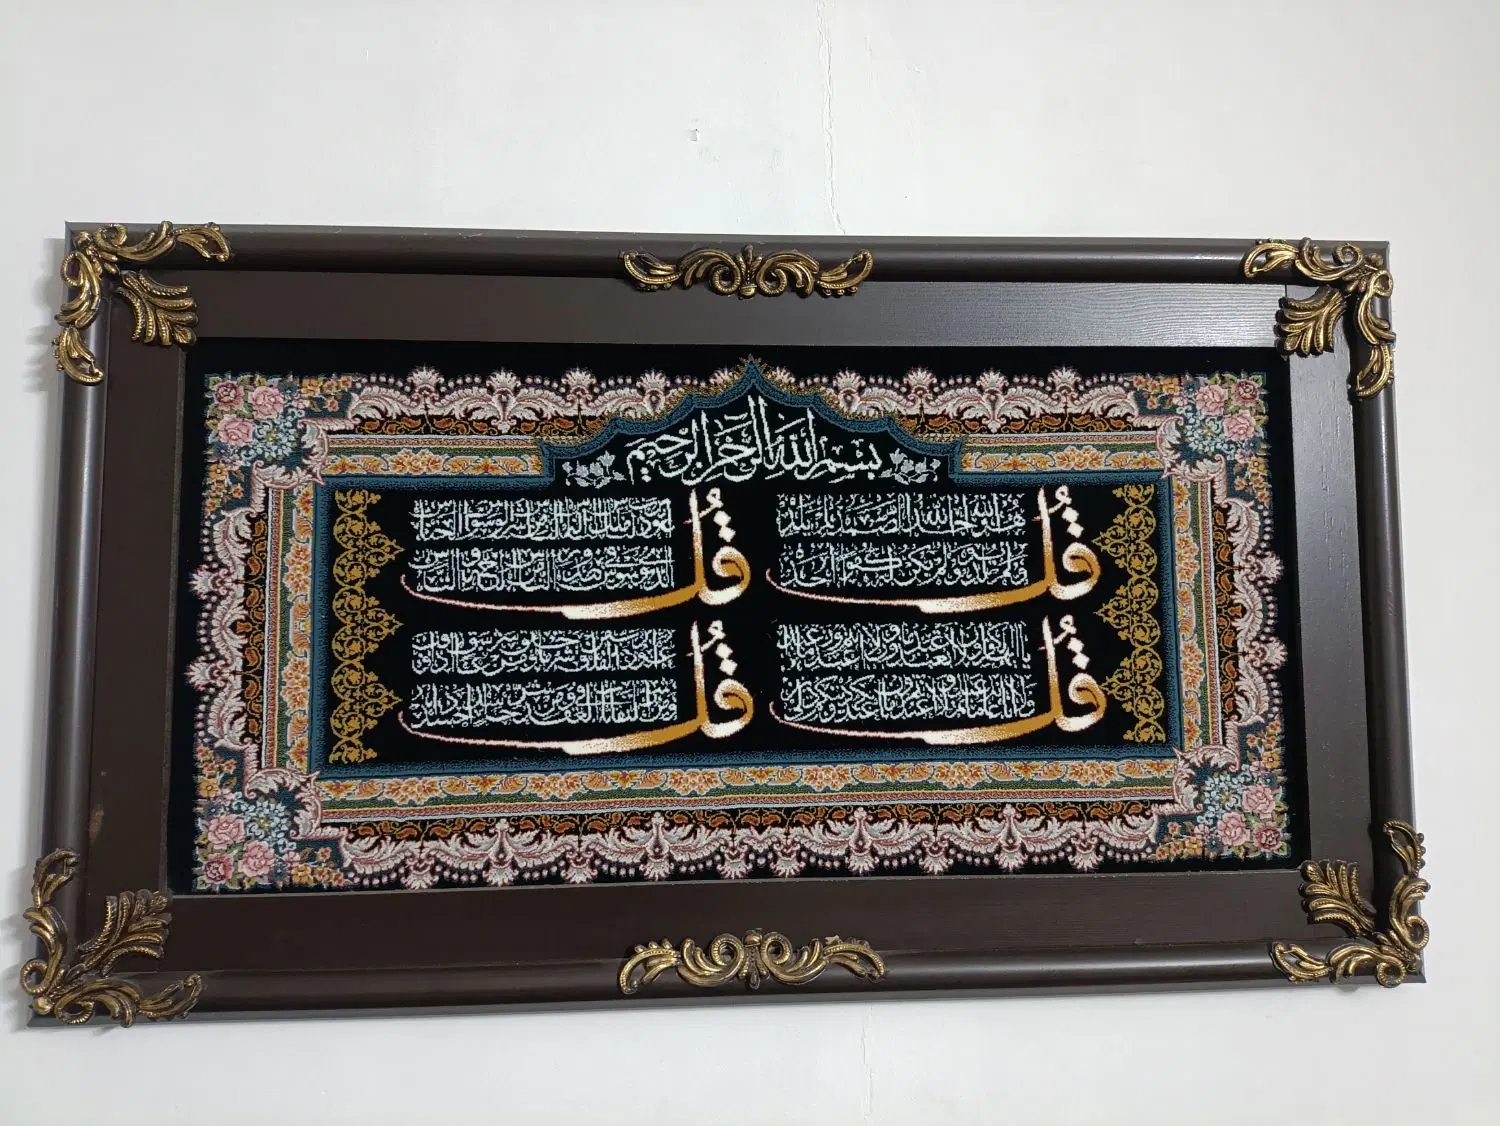 بسم الله الرحمن الرحيم
قل هو الله احد الله الصمد لم يلد
ولم يولد ولم يكن له كفوا احد
قل اعوذ برب الناس ملك الناس اله الناس من شر الوسواس الخناس
الذي يوسوس في صدور الناس من الجنة و الناس
قل يا ايها الكافرون لا اعبد ما تعبدون ولا انتم عابدون ما اعبد
ولا انا عابد ما عبدتم ولا انتم عابدون ما اعبد لكم دينكم ولي دين
قل اعوذ برب الفلق من شر ما خلق ومن شر غاسق اذا وقب
ومن شر النفاثات في العقد ومن شر حاسد اذا حسد